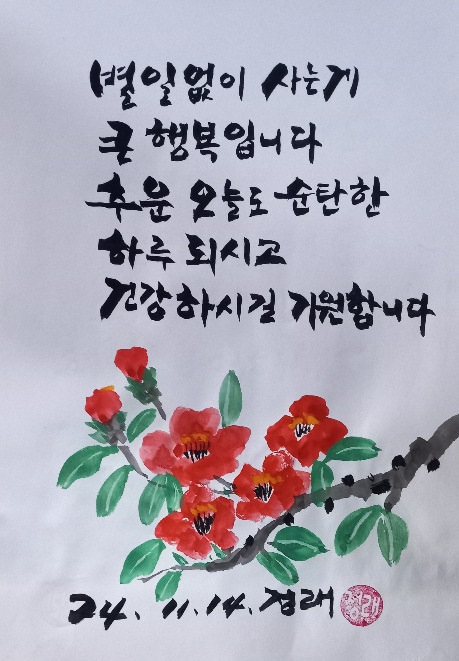 별일없이 사는게
큰 행복입니다
추운 오늘도 순탄한
하루 되시고
건강하시길 기원합니다
24. 11. 14. 정래
정래